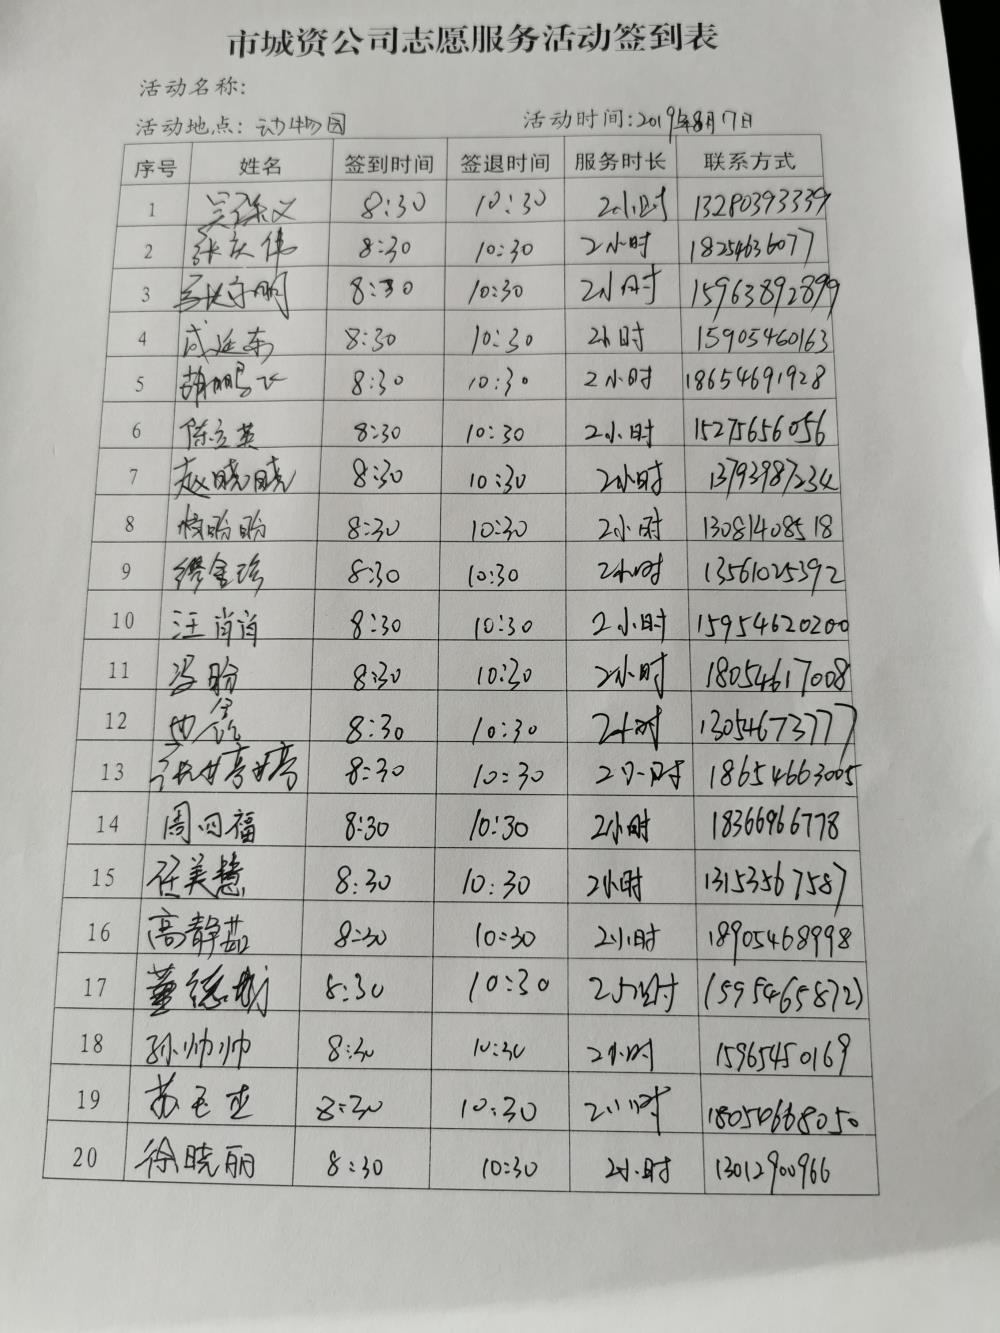 市城资公司志愿服务活动签到表
活动名称:
活动地点: 动物园 活动时间:2019年8月7日
序号 姓名 签到时间 签退时间 服务时长 联系方式
1 8:30 10:30 2小时 13280393339
2 张庆伟 8:30 10:30 2小时 18254636077
3 8:30 10:30 2小时 15963892899
4 成延东 8:30 10:30 2小时 15905460163
5 胡鹏飞 8:30 10:30 2小时 18654691928
6 陈立英 8:30 10:30 2小时 15275656056
7 赵晓晓 8:30 10:30 2小时 13793987234
8 盼盼 8:30 10:30 2小时 13081408518
9 缪金珍 8:30 10:30 2小时 13561025392
10 汪肖肖 8:30 10:30 2小时 15954620200
11 冯盼 8:30 10:30 2小时 18054617008
12 8:30 10:30 2小时 13054673777
13 张婷婷 8:30 10:30 2小时 18654663005
14 周四福 8:30 10:30 2小时 18366966778
15 任美慧 8:30 10:30 2小时 13153567587
16 高静茹 8:30 10:30 2小时 18905468998
17 董德 8:30 10:30 2小时 15954658721
18 孙帅帅 8:30 10:30 2小时 15965450169
19 苏玉 8:30 10:30 2小时 18054668050
20 徐晓丽 8:30 10:30 2小时 13012900966